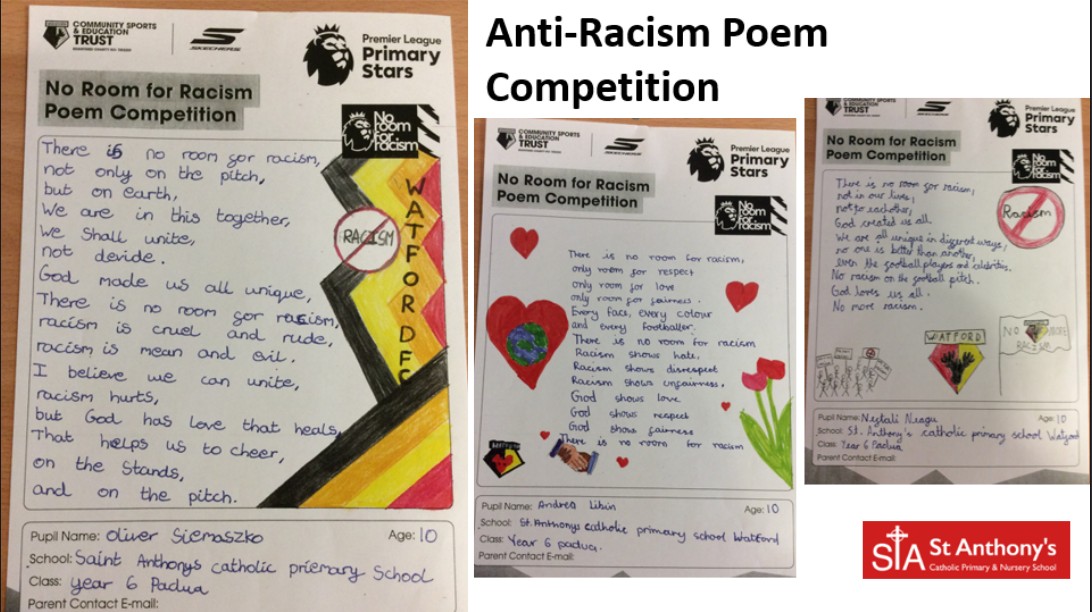 Anti-Racism Poem
Competition
COMMUNITY SPORTS
& EDUCATION
TRUST
SKECHERS
Premier League
Primary
Stars
No Room for Racism
Poem Competition
No
room
for
racism
There is no room for racism,
not only on the pitch,
but on earth,
We are in this together,
We shall unite,
not devide.
God made us all unique,
There is no room for racism,
racism is cruel and rude,
racism is mean and evil.
I believe we can unite,
racism hurts,
but God has love that heals,
That helps us to cheer,
on the stands,
and on the pitch.
RACISM
WATFORD FC
Pupil Name: Oliver Siemaszko
Age: 10
School: Saint Anthonys catholic priemary School
Class: year 6 Padua
Parent Contact E-mail:
COMMUNITY SPORTS
& EDUCATION
TRUST
SKECHERS
Premier League
Primary
Stars
No Room for Racism
Poem Competition
No
room
for
racism
There is no room for racism,
only room for respect
only room for love
only room for fairness.
Every face, every colour
and every footballer.
There is no room for racism
Racism shows hate,
Racism shows disrespect
Racism shows unfairness.
God shows love
God shows respect
God show fairness
There is no room for racism
Pupil Name: Andrea Libin
Age: 10
School: St.Anthonys catholic primary school Watford
Class: Year 6 padua.
Parent Contact E-mail:
COMMUNITY SPORTS
& EDUCATION
TRUST
SKECHERS
Premier League
Primary
Stars
No Room for Racism
Poem Competition
No
room
for
racism
There is no room for racism,
not in our lives,
not to eachother,
God created us all.
We are all unique in different ways,
no one is better than another,
even the football players and celebrities.
No racism on the football pitch.
God loves us all.
No more racism.
Racism
WATFORD
NO MORE
RACISM
Pupil Name: Neagu
Age: 10
School: St. Anthony's catholic primary school Watford
Class: Year 6 Padua
Parent Contact E-mail:
STA
St Anthony's
Catholic Primary & Nursery School